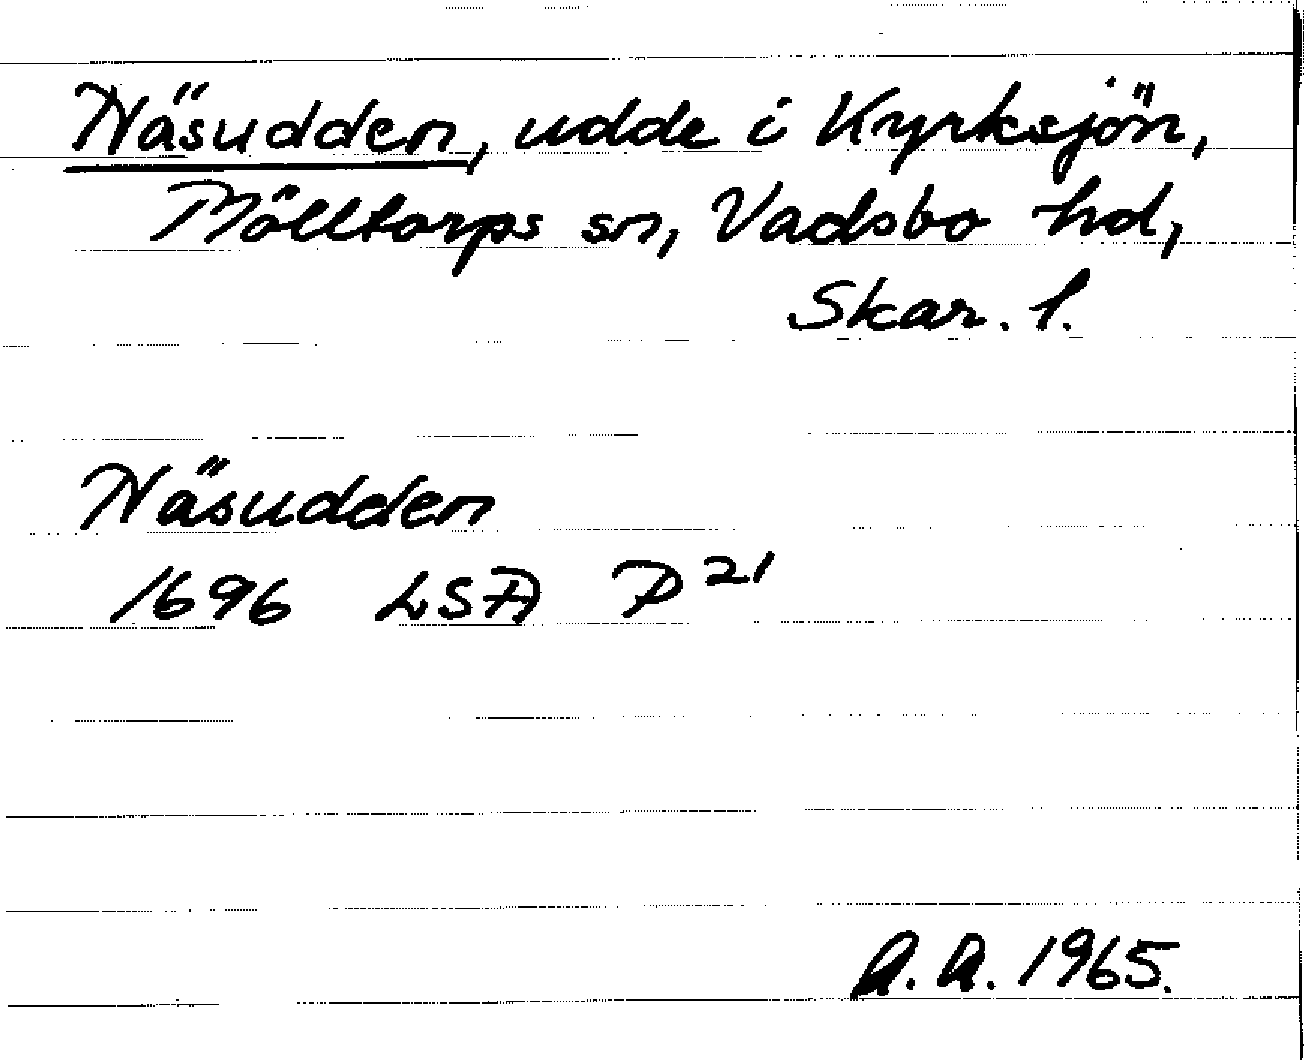 Näsudden, udde i Kyrksjön,
Mölltorps sn, Vadsbo hd,
Skar. l.
Näsudden
1696 LSA P 21
A. A. 1965.